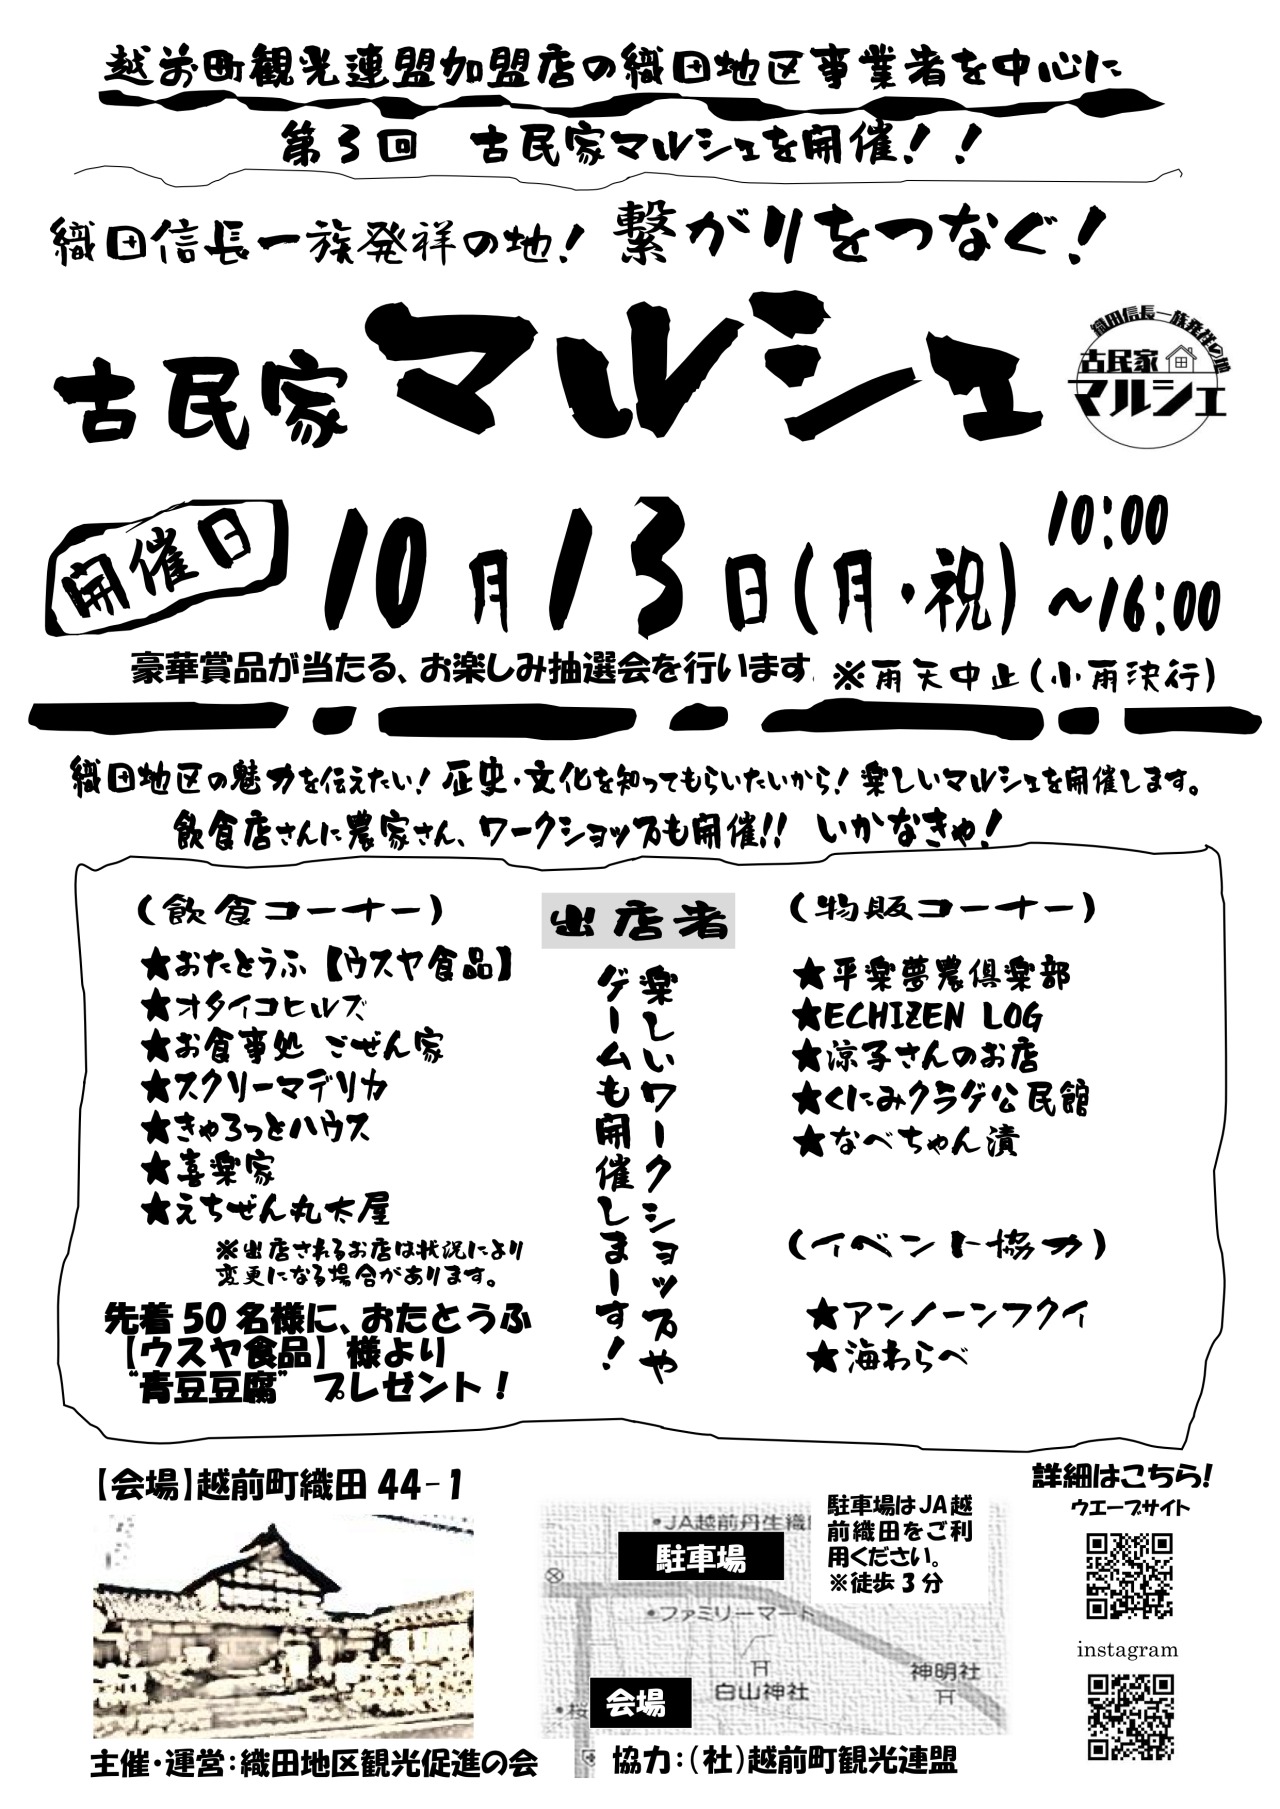 越前町観光連盟加盟店の織田地区事業者を中心に
第3回　古民家マルシェを開催！！
織田信長一族発祥の地！ 繋がりをつなぐ！
古民家マルシェ
織田信長一族発祥の地
古民家
マルシェ
開催日
10月13日(月・祝)
10:00
～16:00
豪華賞品が当たる、お楽しみ抽選会を行います
※雨天中止(小雨決行)
織田地区の魅力を伝えたい！歴史・文化を知ってもらいたいから！楽しいマルシェを開催します。
飲食店さんに農家さん、ワークショップも開催!!　いかなきゃ！
出店者
(飲食コーナー)
★おたとうふ【ウスヤ食品】
★オタイコヒルズ
★お食事処 ごぜん家
★スクリーマデリカ
★きゃろっとハウス
★喜楽家
★えちぜん丸太屋
※出店されるお店は状況により
変更になる場合があります。
先着50名様に、おたとうふ
【ウスヤ食品】様より
“青豆豆腐” プレゼント！
楽しいワークショップや
ゲームも開催しまーす！
(物販コーナー)
★平楽夢農倶楽部
★ECHIZEN LOG
★涼子さんのお店
★くにみクラゲ公民館
★なべちゃん漬
(イベント協力)
★アンノーンフクイ
★海わらべ
【会場】越前町織田44-1
・JA越前丹生織
駐車場
駐車場はJA越
前織田をご利
用ください。
※徒歩3分
・ファミリーマート
白山神社
神明社
会場
・桜
詳細はこちら！
ウエーブサイト
instagram
主催・運営：織田地区観光促進の会
協力：（社）越前町観光連盟